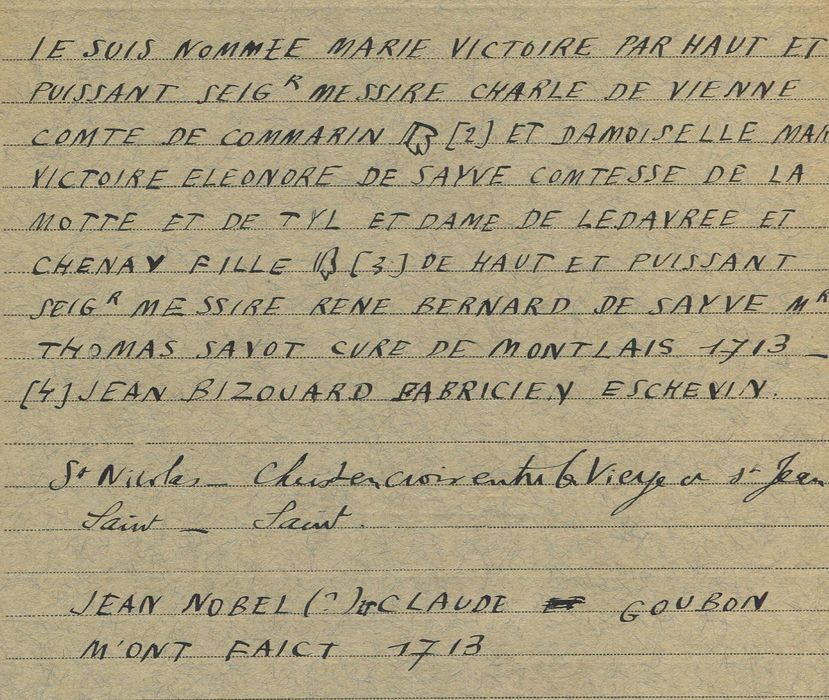 IE SUIS NOMMEE MARIE VICTOIRE PAR HAUT ET
PUISSANT SEIG R MESSIRE CHARLE DE VIENNE
COMTE DE COMMARIN [2] ET DAMOISELLE MAR
VICTOIRE ELEONORE DE SAYVE COMTESSE DE LA
MOTTE ET DE TYL ET DAME DE LEDAVREE ET
CHENAY FILLE [3] DE HAUT ET PUISSANT
SEIG R MESSIRE RENE BERNARD DE SAYVE M R
THOMAS SAVOT CURE DE MONTLAIS 1713 _
[4] JEAN BIZOUARD FABRICIEN ESCHEVIN.
St Nicolas _ Christ en croix entre la Vierge et St Jean
Saint _ Saint.
JEAN NOBEL (?) et CLAUDE GOUBON
M'ONT FAICT 1713